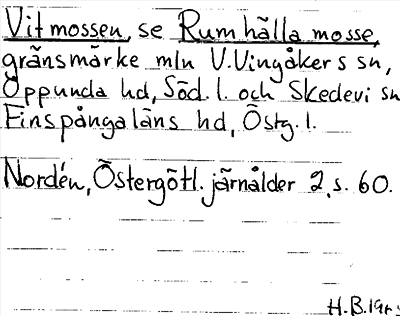 Vitmossen, se Rumhälla mosse,
gränsmärke mln V.Vingåkers sn,
Oppunda hd, Söd.l. och Skedevi sn
Finspånga läns hd, Östg.l.
Nordén, Östergötl. järnålder 2, s. 60.
H.B.